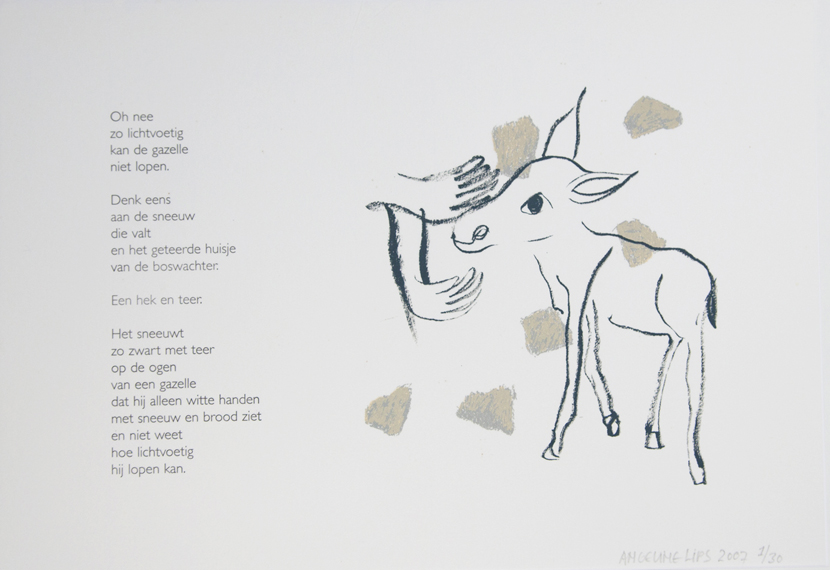 Oh nee
zo lichtvoetig
kan de gazelle
niet lopen.
Denk eens
aan de sneeuw
die valt
en het geteerde huisje
van de boswachter.
Een hek en teer.
Het sneeuwt
zo zwart met teer
op de ogen
van een gazelle
dat hij alleen witte handen
met sneeuw en brood ziet
en niet weet
hoe lichtvoetig
hij lopen kan.
LIPS 2002 /30